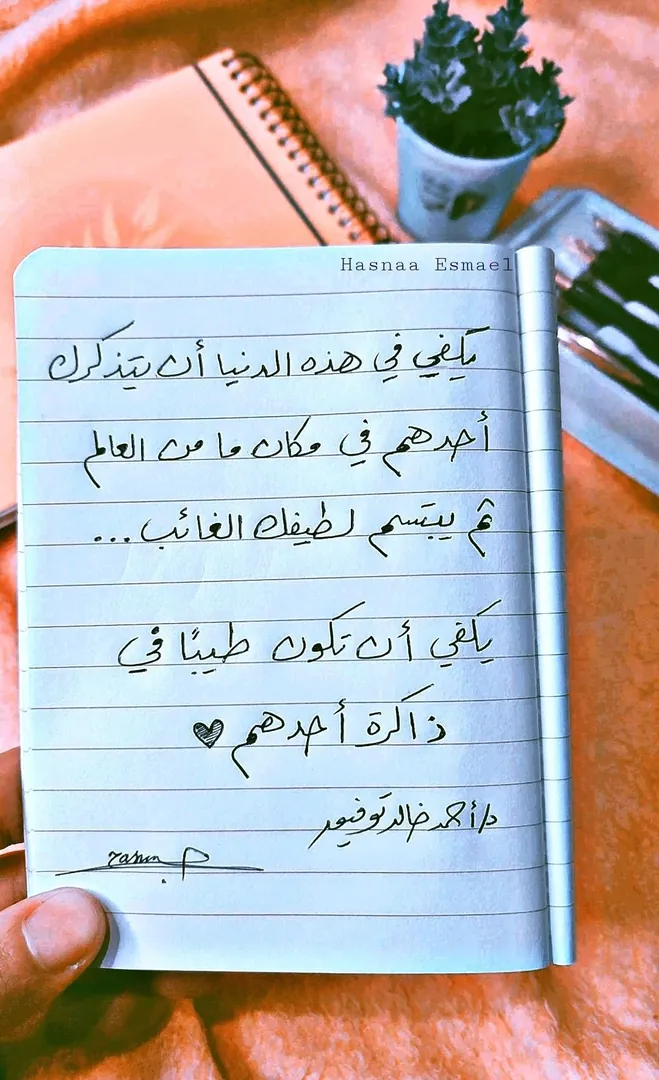 Hasnaa Esmael
يكفي في هذه الدنيا أن يتذكرك
أحدهم في مكان ما من العالم
ثم يبتسم لطيفك الغائب ...
يكفي أن تكون طيبًا في
ذاكرة أحدهم ♥
د/أحمد خالد توفيق